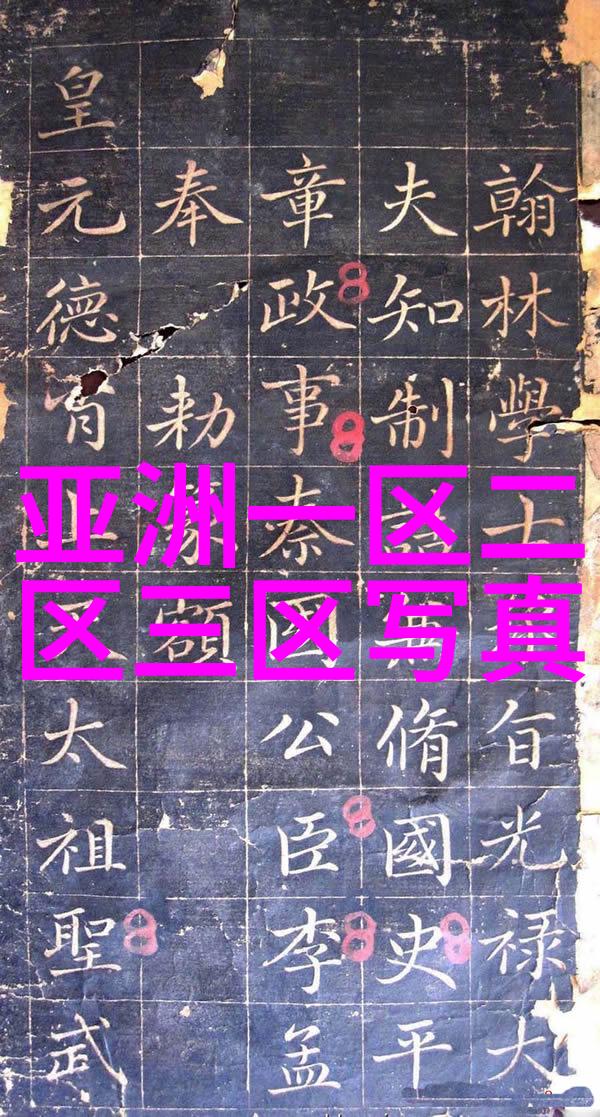 亚洲一区二
区三区写真
翰林學士旨光禄大
夫知制誥脩國史平
章政事秦国公臣李孟
奉勅篆額
皇元德育太祖聖武